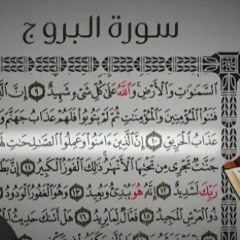 سورة البروج
السَّمَٰوَٰتِ وَالْأَرْضِ وَاللَّهُ عَلَىٰ كُلِّ شَيْءٍ شَهِيدٌ ٩ إِنَّ الَّذِينَ
فَتَنُوا الْمُؤْمِنِينَ وَالْمُؤْمِنَٰتِ ثُمَّ لَمْ يَتُوبُوا فَلَهُمْ عَذَابُ جَهَنَّمَ وَلَهُمْ
عَذَابُ الْحَرِيقِ ١٠ إِنَّ الَّذِينَ ءَامَنُوا وَعَمِلُوا الصَّٰلِحَٰتِ لَهُمْ
جَنَّٰتٌ تَجْرِي مِن تَحْتِهَا الْأَنْهَٰرُ ذَٰلِكَ الْفَوْزُ الْكَبِيرُ ١١ إِنَّ بَطْشَ
رَبِّكَ لَشَدِيدٌ ١٢ إِنَّهُ هُوَ يُبْدِئُ وَيُعِيدُ ١٣ وَهُوَ الْغَفُورُ الْوَدُودُ ١٤
ذُو الْعَرْشِ الْمَجِيدُ ١٥ فَعَّالٌ لِّمَا يُرِيدُ ١٦ هَلْ أَتَىٰكَ حَدِيثُ